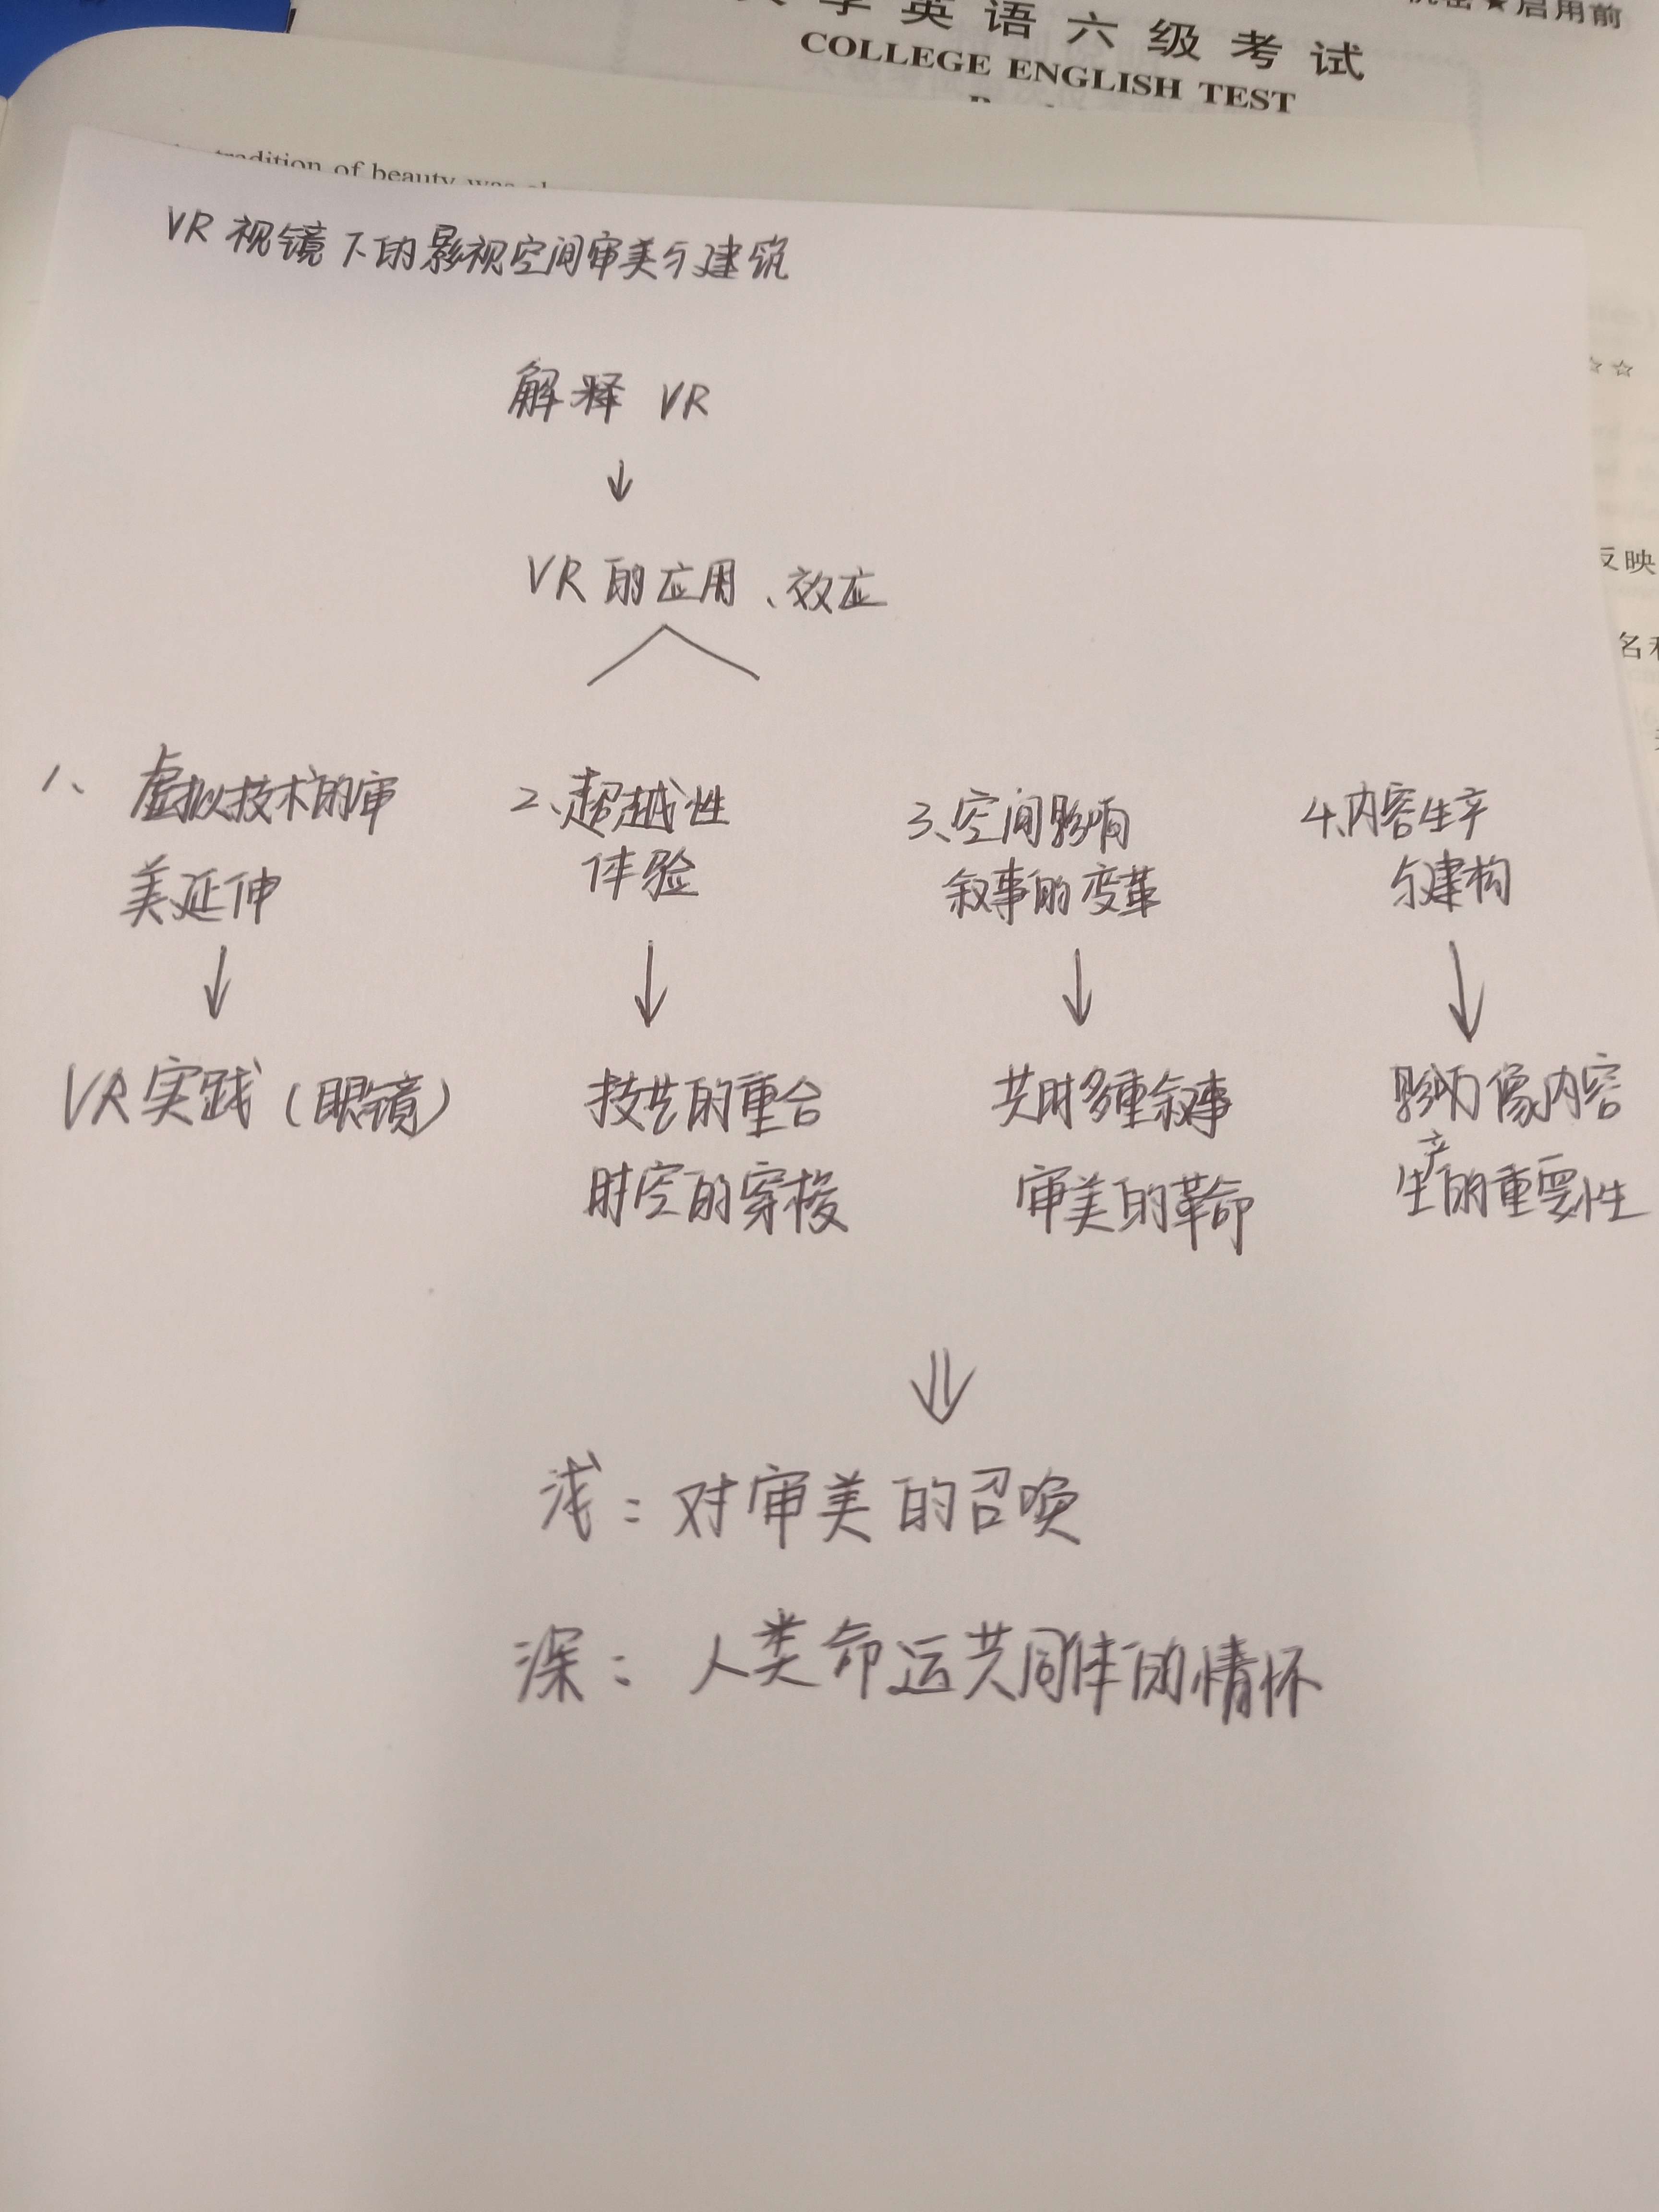 学英语六级考试
启用前
COLLEGE ENGLISH TEST
tradition of beauty was
☆☆
反映
VR视镜下的影视空间审美与建筑
解释 VR
↓
VR的应用、效应
1、虚拟技术的审
美延伸
↓
VR实践(眼镜)
2、超越性
体验
↓
技艺的重合
时空的穿梭
3、空间影响
叙事的变革
↓
共时多重叙事
审美的革命
4、内容生产
与建构
↓
影响像内容
生产的重要性
⇓
浅:对审美的召唤
深:人类命运共同体的情怀